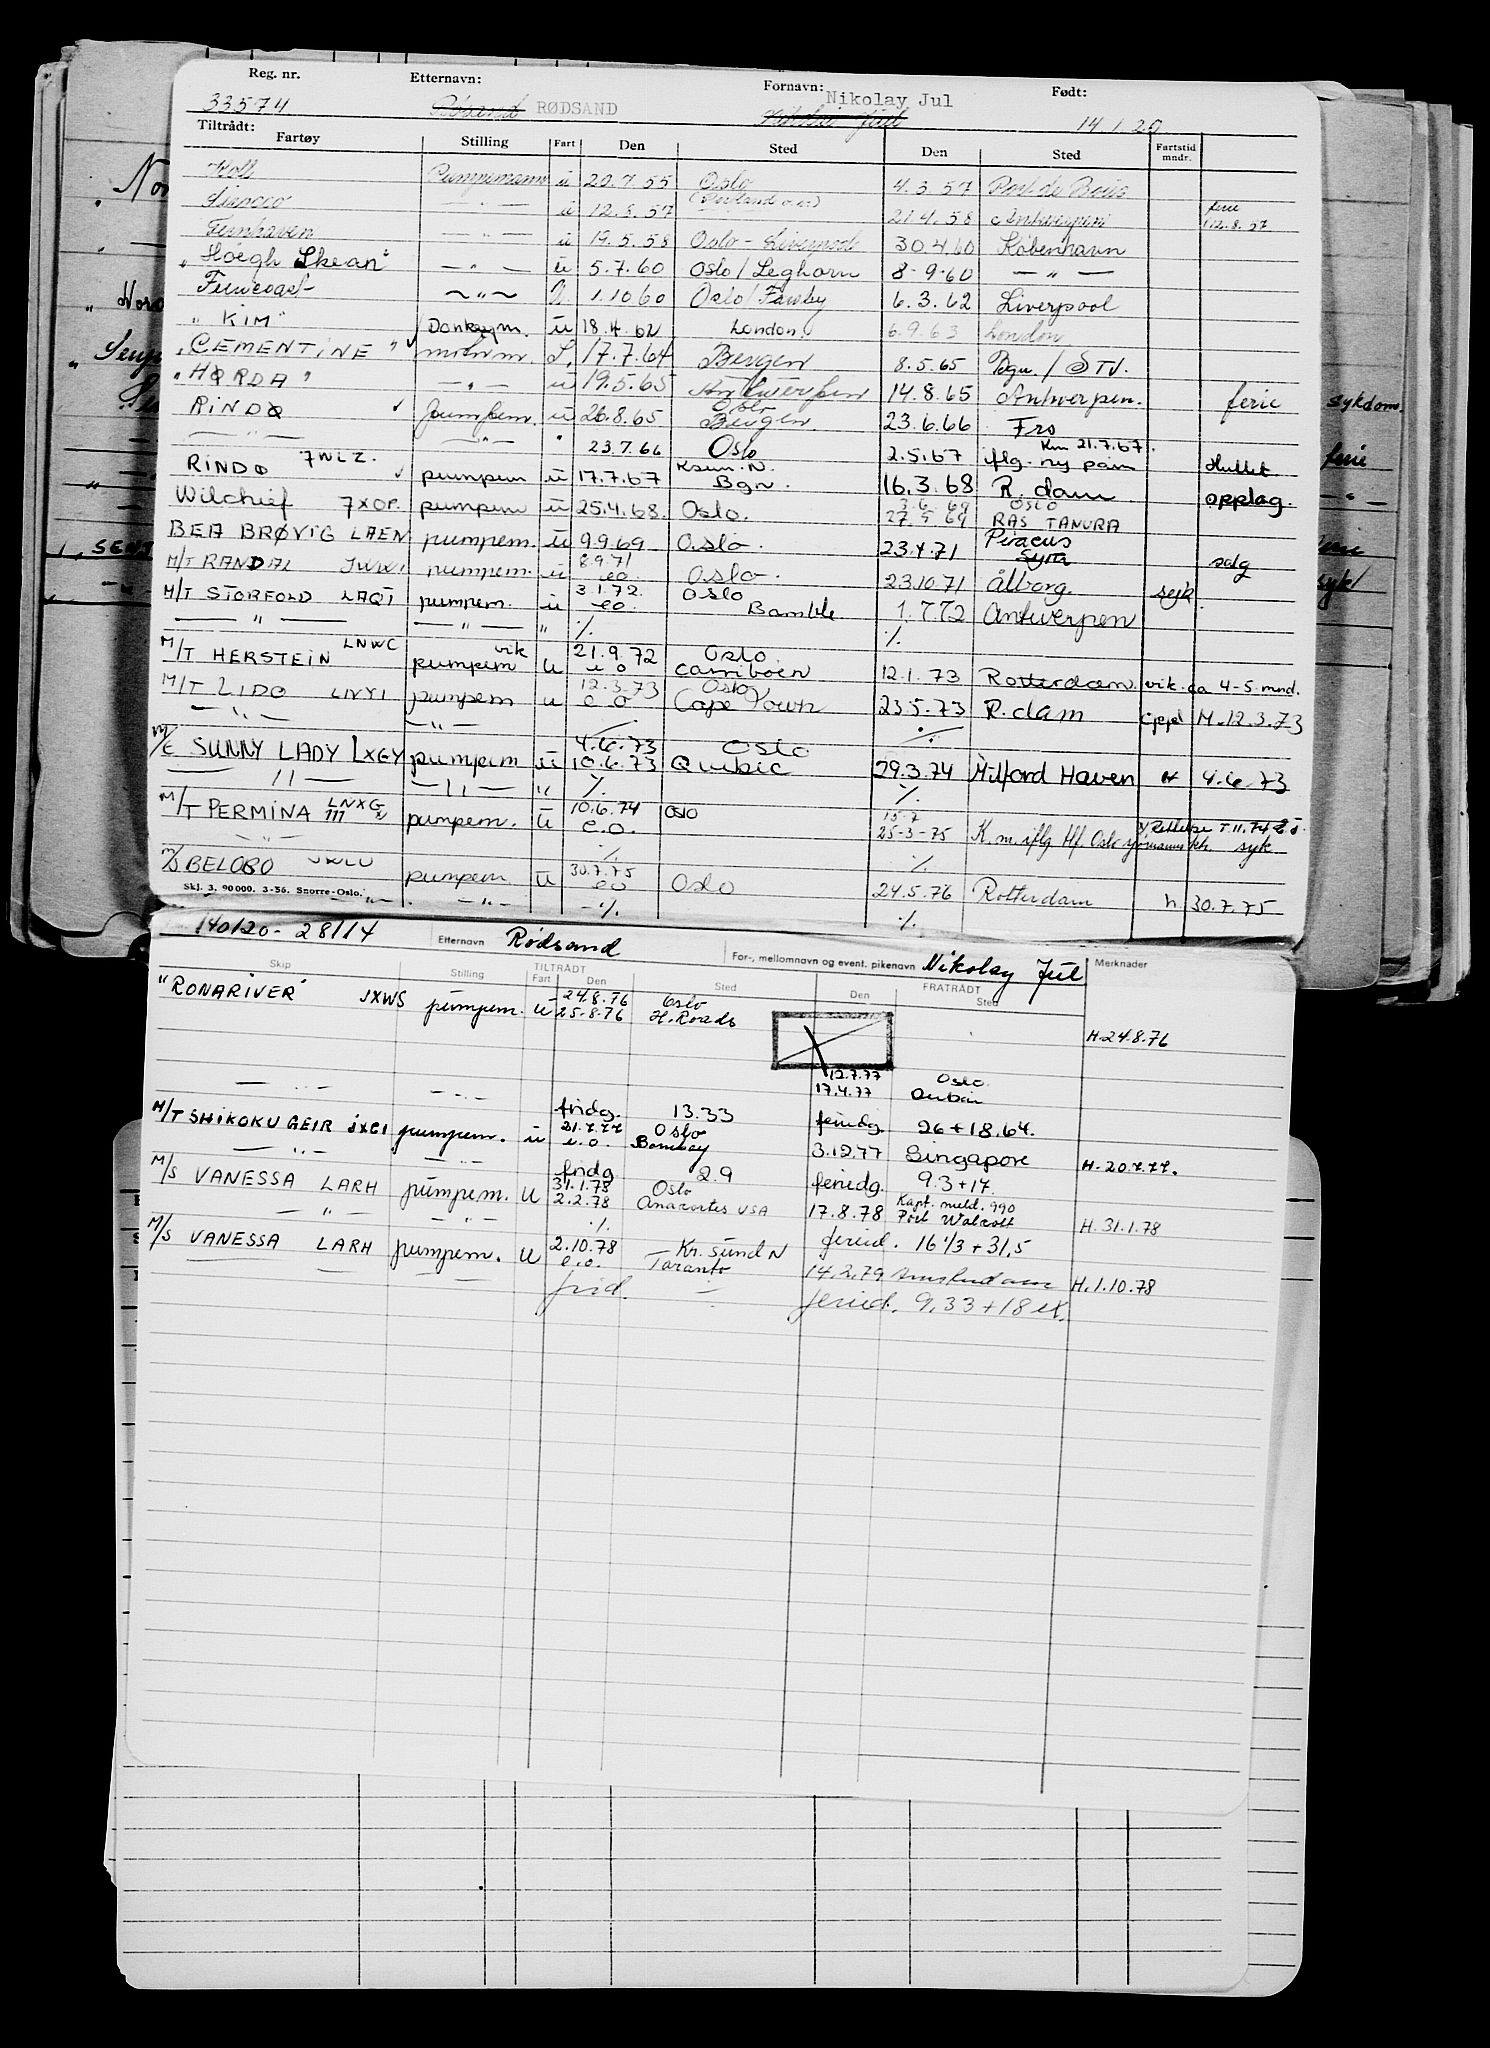 Reg. nr. Etternavn: Fornavn: Født:
33574 Rösand RØDSAND Nikolay Jul 14 1 20
Tiltrådt:
Fartøy Stilling Fart Den Sted Den Sted Fartstid mndr.
Koll Pumpemann u 20.7.55 Oslo 4.3.57 Port de Bouc
Sirocco — " — u 12.5.57 (Portland o.a.) 21.4.58 Antwerpen ferie 12.8.57
Fernhaven — " — u 19.5.58 Oslo - Liverpool 30.4.60 København
"Höegh Skean" — " — ü 5.7.60 Oslo/Leghorn 8-9-60 — " —
— " — 1.10 60 Oslo/Fawley 6.3.62 Liverpool
"KIM" Donkeym. ü 18.4.62 London 6.9.63 London
"CEMENTINE" motorm. 17.7.64 Bergen 8.5.65
"HØRDA" — " — ü 19.5.65 Antwerpen 14.8.65 Antwerpen. ferie sykdom.
RINDØ pumpem. ü 26.8.65 Oslo Bergen 23.6.66 Fro
— " — — " — " 23.7.66 Oslo 2.5.67 iflg. ny pam Km 21.7.67. sluttet ferie
RINDØ 7WLZ. pumpem ü 17.7.67 Ksun. N. Bgn. 16.3.68 R.dam opplag. — " —
Wilchief 7XOP. pumpem ü 25.4.68. Oslo. 3.6.69 OSLO
27.5 69 RAS TANURA
BEA BRØVIG LAEN pumpem. ü 9.9.69 Oslo. 23.4.71 Piraeus Syra salg
M/T RANDAL pumpem. ü 8.9.71 eo Oslo. 23.10.71 Ålborg. syk
M/T STORFOLD LAQT pumpem. ü 3.1.72. eo Oslo Bamble 1.7.72 Antwerpen
— " — — " — " ./. ./.
M/T HERSTEIN LNWC vik pumpem u 21.9.72 u o Oslo 12.1.73 Rotterdam. vik. ca 4-5 mnd.
M/T LIDO LNYI pumpem u 12.3.73 e o Oslo Cape Town 23.5.73 R.dam oppl M.12.3.73
— " — — " — ./. ./.
M/T SUNNY LADY LXGY pumpem ü 4.6.73 Oslo
10.6.73 Quibic 29.3.74 Milford Haven H 4.6.73
— " — — " — " ./. ./.
M/T PERMINA III LNXG pumpem. ü 10.6.74 e.o. Oslo 15-7
25-3-75 K.m. iflg Hf. Oslo syk
./. ./.
M/S BELOBO JXLU pumpem ü 30.7.75 eo Oslo 24.5.76 Rotterdam h 30.7.75
Skj. 3. 90 000. 3-56. Snorre-Oslo. — " — — " — ./. ./.
140120 - 28114 Etternavn Rødsand For-, mellomnavn og event. pikenavn Nikolay Jul Merknader
TILTRÅDT FRATRÅDT
Skip Stilling Fart Den Sted Den Sted
"RONARIVER" JXWS pumpem. ü 24.8.76 Oslo
25.8.76 H.Roads H-24.8.76
12.7.77 Oslo
— " — — " — 17.4.77 Dubai
fridg. 13.33 feriedg. 26+18.64.
M/T SHIKOKU GEIR JXCI pumpem. ü 21.7.77 e.o. Oslo Bombay 3.12.77 Singapore H-20.7.77.
— " — — " — fridg 2.9 feriedg. 9.3+17.
M/S VANESSA LARH pumpem. u 31.1.78 Oslo
2.2.78 Anacortes USA 17.8.78 Kapt. meld. 990 Port Walcott H. 31.1.78
— " — — " — ./. feried. 16 1/3 + 31,5
M/S VANESSA LARH pumpem. u 2.10.78 e.o. Kr.sund N Taranto 14.2.79 Amsterdam H.1.10.78
— — frid. — feried. 9,33+18